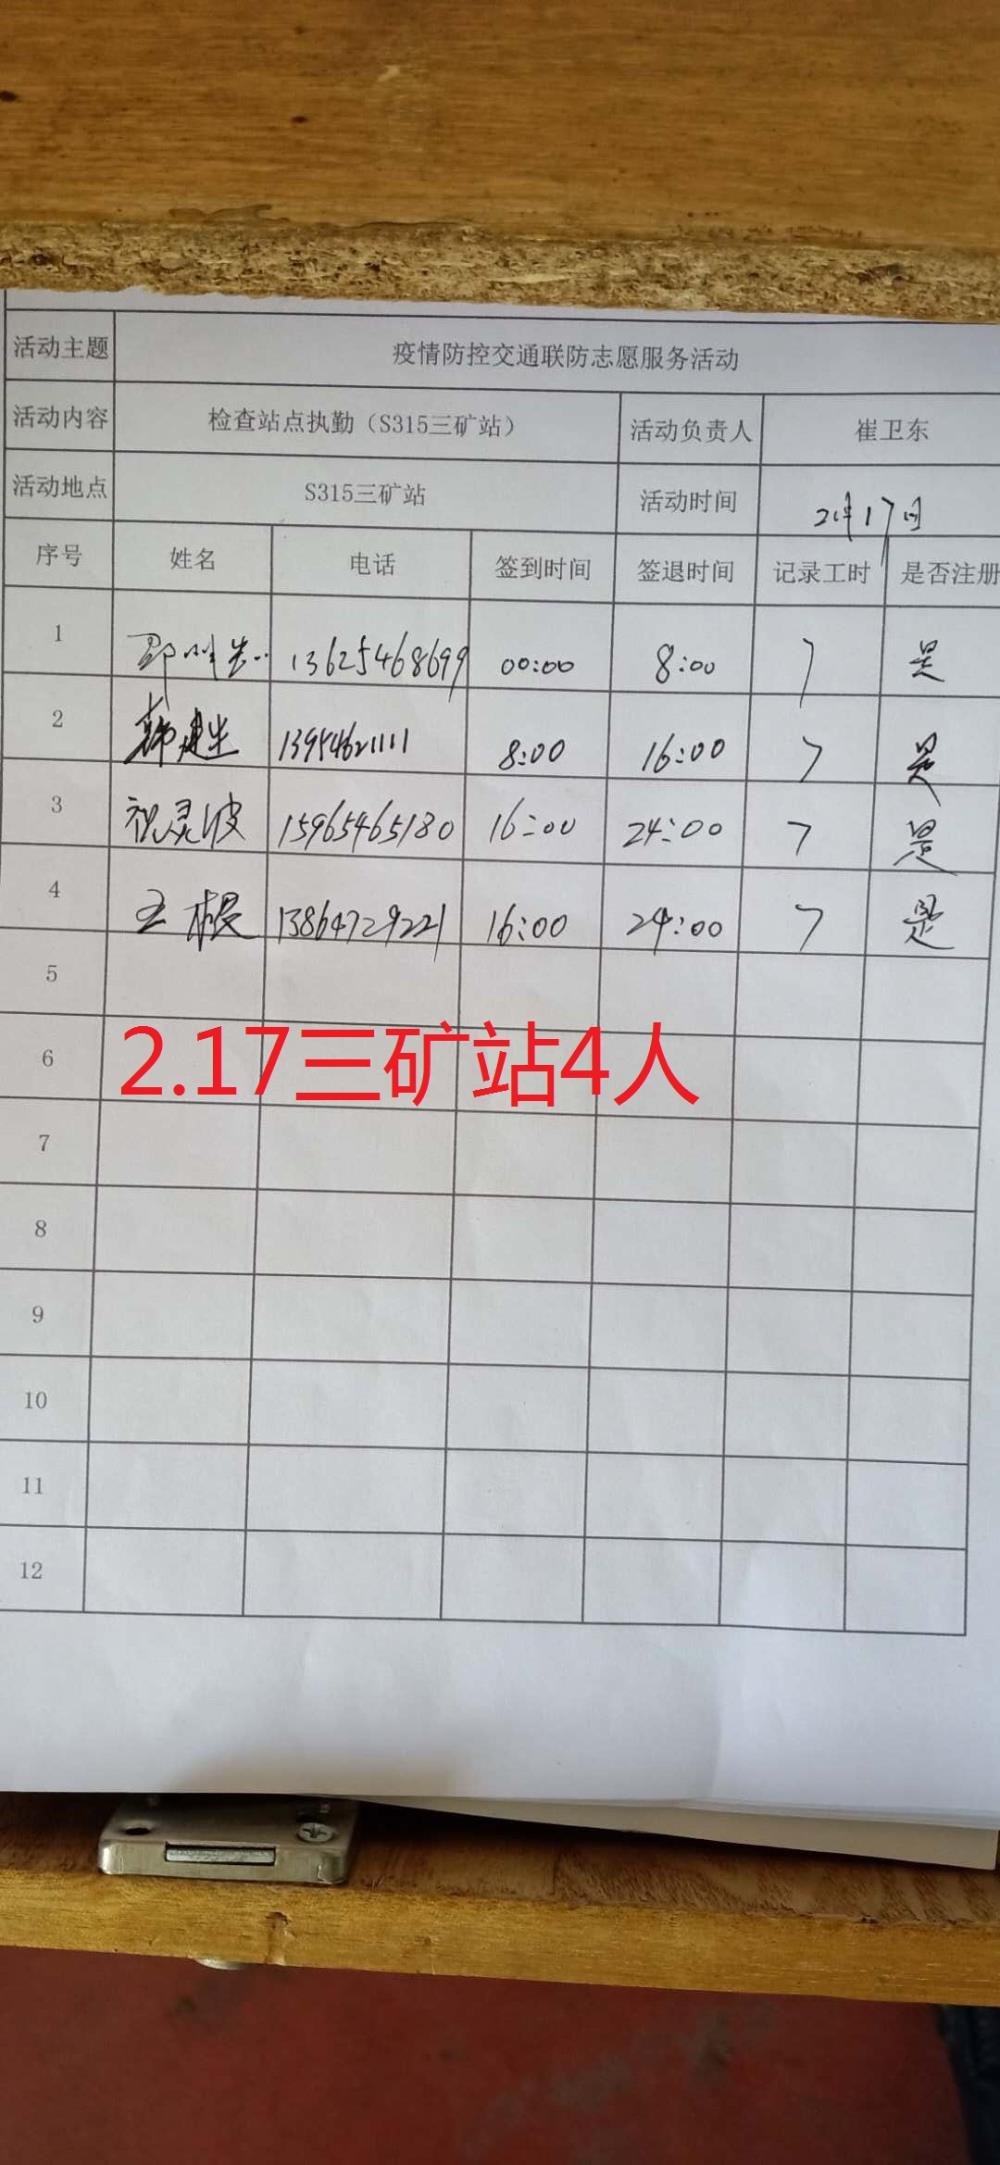 活动主题 疫情防控交通联防志愿服务活动
活动内容 检查站点执勤（S315三矿站） 活动负责人 崔卫东
活动地点 S315三矿站 活动时间 2月17日
序号 姓名 电话 签到时间 签退时间 记录工时 是否注册
1 13625468699 00:00 8:00 7 是
2 韩建生 13954621111 8:00 16:00 7 是
3 祝灵波 15965465180 16:00 24:00 7 是
4 王根 13864729221 16:00 24:00 7 是
5
6 2.17三矿站4人
7
8
9
10
11
12